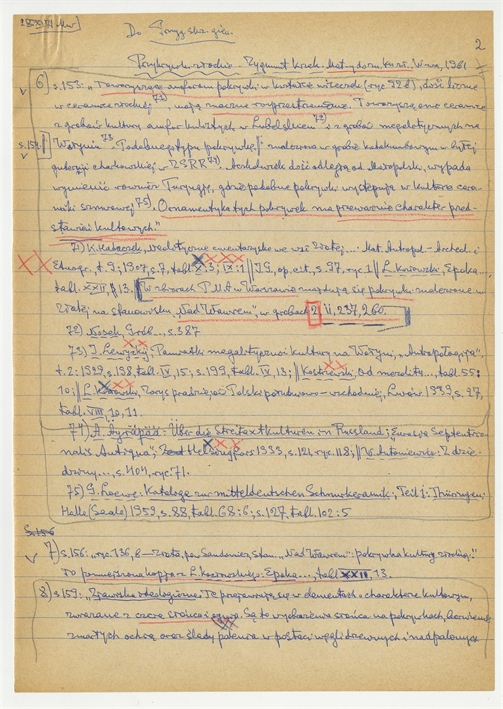 Do Przyg. sbz. gien.
2
Pokrywki złockie - Zygmunt Krzak. Mat. do zn. ku. zł. W-wa, 1961
6) s.153: „Towarzyszące amforom pokrywki w kształcie wieczek (ryc. 92 d), dość liczne
w ceramice złockiej 71), mają znaczne rozprzestrzenienie. Towarzyszą one ceramice
z grobów kultury amfor kulistych w Lubelskiem 72) i z grobów megalitycznych na
s.154 Wołyniu 73. Podobne typy pokrywek znalezione w grobie katakumbowym w byłej
guberni charkowskiej - ZSRR 74). Aczkolwiek dość odległą od Małopolski, wypada
wymienić również Turyngię, gdzie podobne pokrywki występują w kulturze cera-
miki sznurowej 75). Ornamentyka tych pokrywek ma przeważnie charakter przed-
stawień kultowych."
71) K. Hadaczek, Neolityczne cmentarzysko we wsi Złotej... Mat. Antropol.-Archeol. i
Etnogr., t. 9; 1907, s. 7, tabl. X:3; IX:1 // J.G., op. cit., s. 97, ryc. 1 // L. Kozłowski, Epoka...,
tabl. XXII, 13. W zbiorach P.M.A. w Warszawie znajdują się pokrywki znalezione w
Złotej na stanowisku „Nad Wawrem", w grobach 2, VI, 237, 260.
72) Nosek, Grób..., s. 387
73) J. Lewycky: Pamiatki megalitycznoi kultury na Wołyni, „Antropologija"
t. 2: 1929, s. 198, tabl. IV, 15; s. 199, tabl. IV, 13; // Kostrzewski, Od mezolitu..., tabl. 55:
10; // L. Kozłowski, Zarys pradziejów Polski południowo-wschodniej, Lwów 1939, s. 27,
tabl. VIII, 10, 11.
74) A. Äyräpää: Über die Streitaxtkulturen in Russland; Eurasia Septentrio-
nalis Antiqua; 8, Helsingfors 1933, s. 121, ryc. 118; // W. Antoniewicz: Z dzie-
dziny..., s. 1104, ryc. 71.
75) G. Loewe: Kataloge zur mitteldeutschen Schnurkeramik; Teil 1: Thüringen.
Halle (Saale) 1959, s. 88, tabl. 68:6; s. 127, tabl. 102:5
s. 156
7) s. 156: ryc. 136, b - Złota, pow. Sandomierz, stan. „Nad Wawrem": pokrywka kultury złockiej."
To pomniejszona kopja z L. Kozłowskiego: Epoka..., tabl. XXII, 13.
8) s. 159: „Zjawiska ideologiczne. Te przejawiają się w elementach o charakterze kultowym,
związane z czcią słońca i ognia. Są to wyobrażenia słońca na pokrywkach, barwienie
zmarłych ochrą oraz ślady palenia w postaci węgli drzewnych i nadpalonych